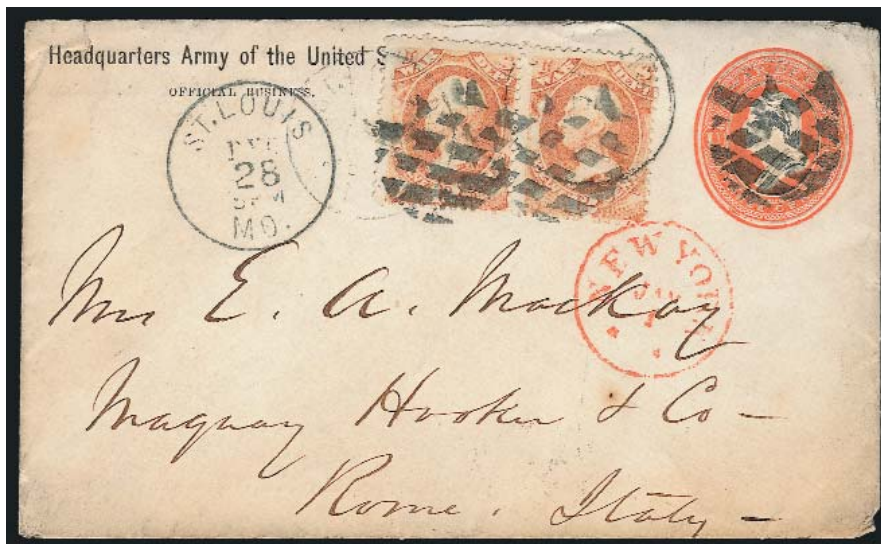 Headquarters Army of the United S
OFFICIAL BUSINESS.
ST. LOUIS
DEC
28
5 PM
MO.
WAR DEPT.
WAR DEPT.
NEW YORK
JAN
1
Mrs E. A. Mackay
Maquay Hooker & Co –
Rome. Italy –